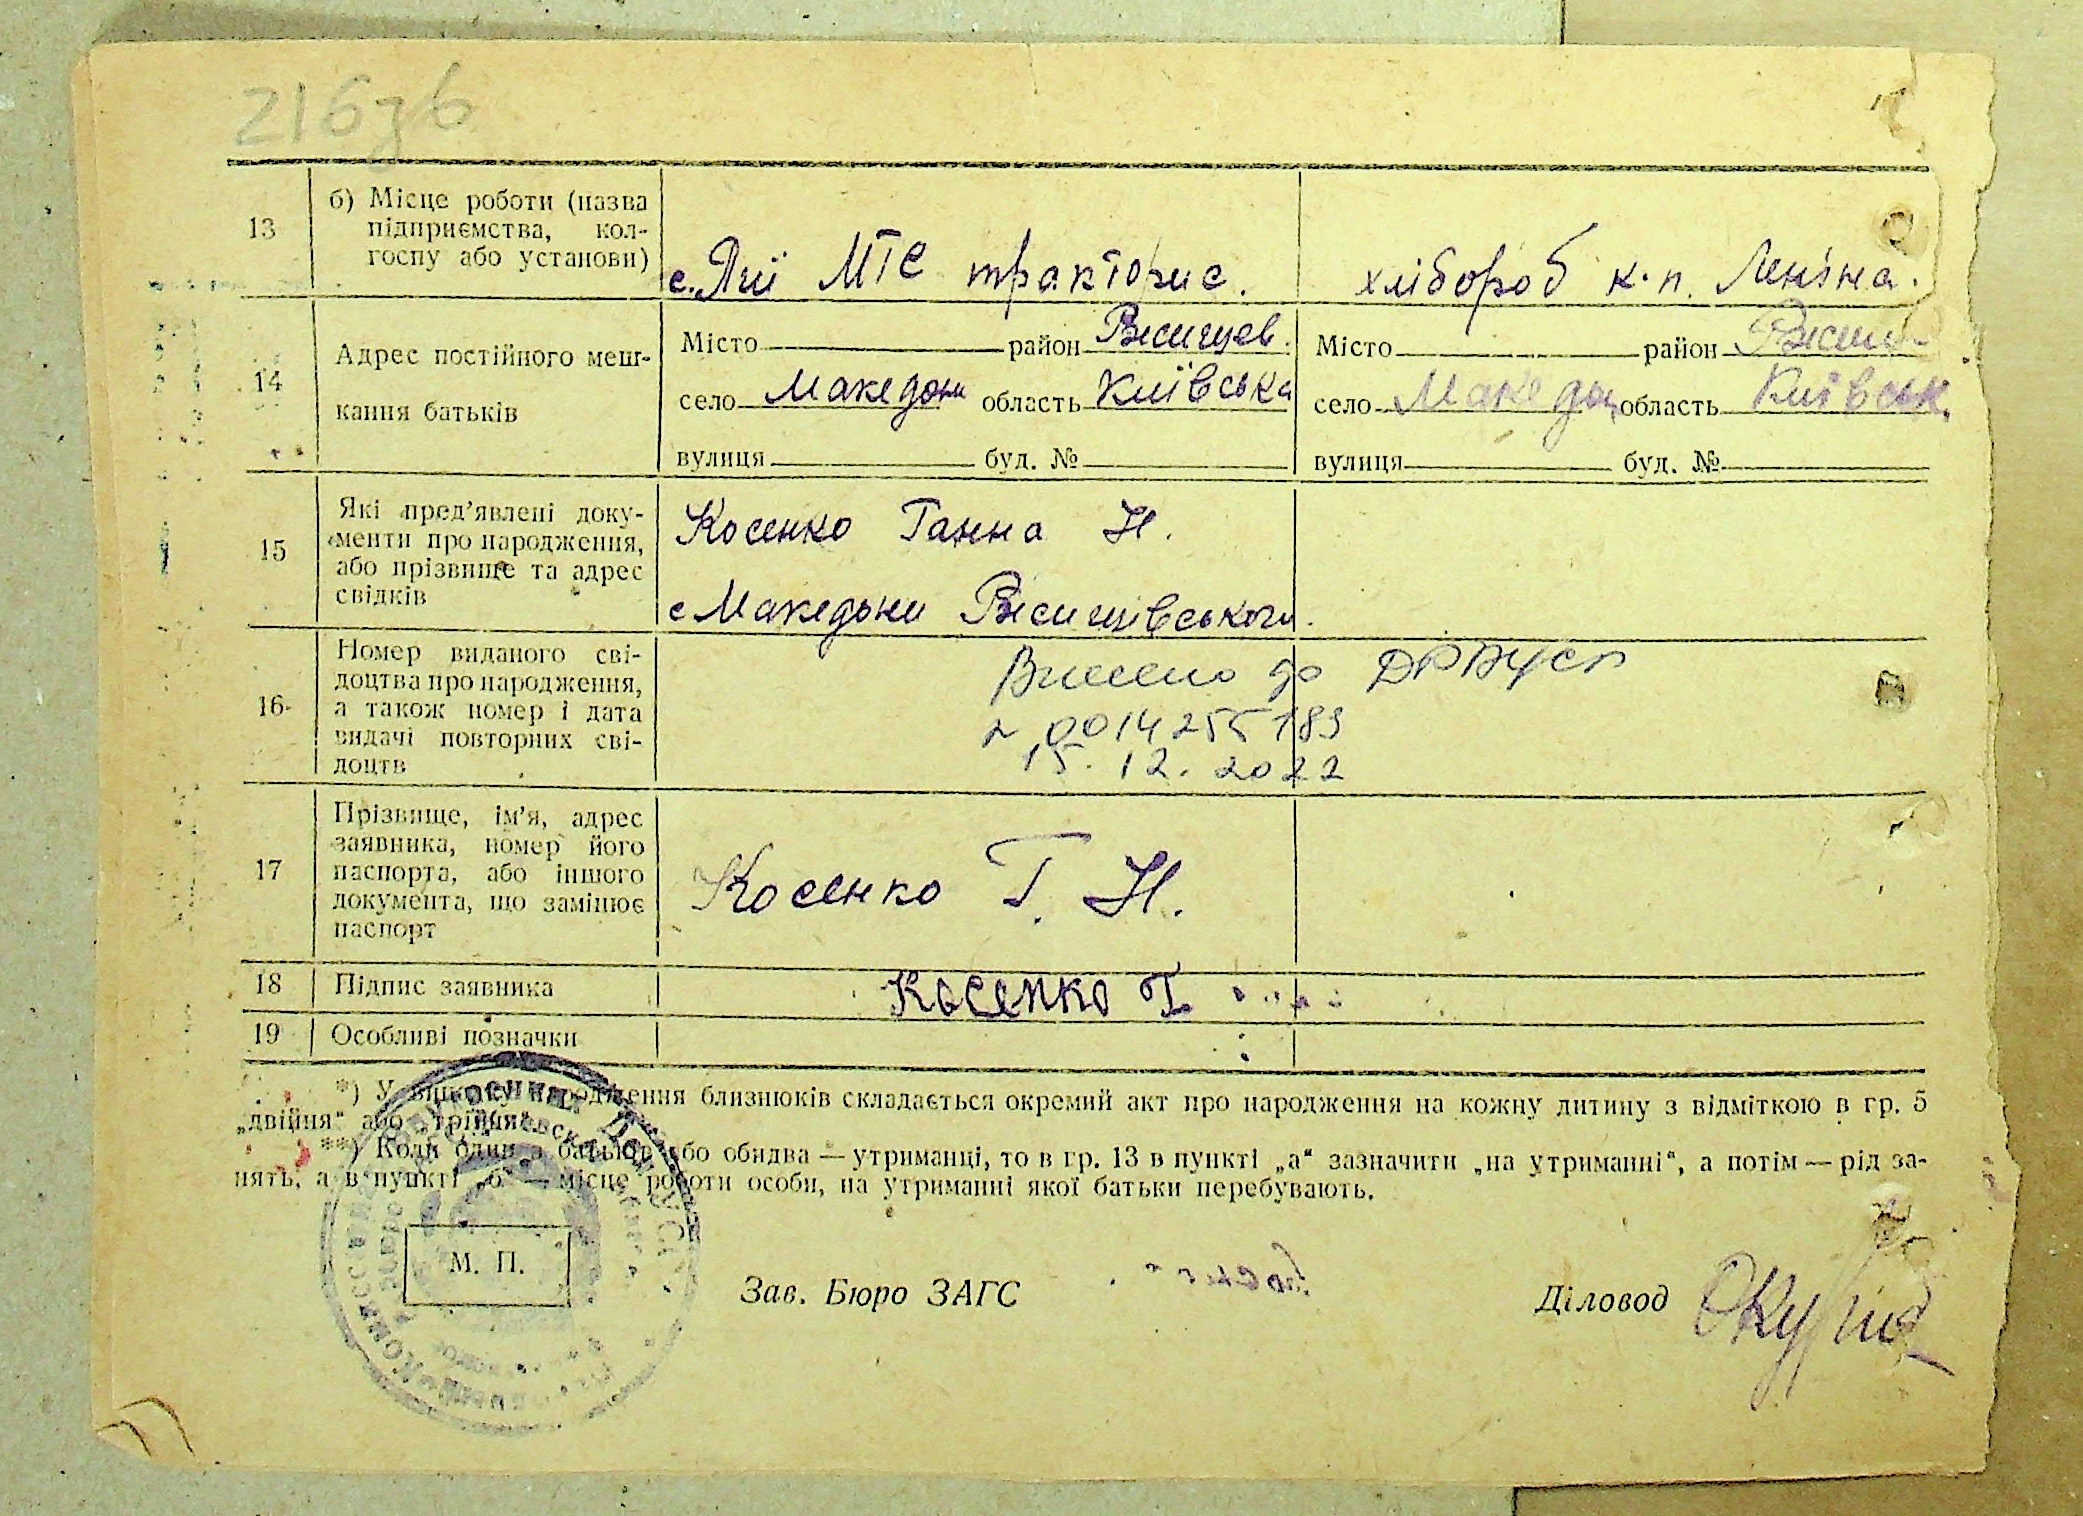 216зв
13
б) Місце роботи (назва
підприємства, кол-
госпу або установи)
МТС тракторис.
хлібороб к.п. Леніна.
14
Адрес постійного меш-
кання батьків
Місто район
село Македони область Київська
вулиця буд. №
Місто район
село Македон область Київськ.
вулиця буд. №
15
Які пред'явлені доку-
менти про народження,
або прізвище та адрес
свідків
Косенко Ганна Н.
с Македони
16
Номер виданого сві-
доцтва про народження,
а також номер і дата
видачі повторних сві-
доцтв
Внесено до
0014255183
15.12.2022
17
Прізвище, ім'я, адрес
заявника, номер його
паспорта, або іншого
документа, що замінює
паспорт
Косенко Г. Н.
18
Підпис заявника
Косенко Г
19
Особливі позначки
*) У випадку народження близнюків складається окремий акт про народження на кожну дитину з відміткою в гр. 5
„двійня“ або „трійня“.
**) Коли один з батьків або обидва — утриманці, то в гр. 13 в пункті „а“ зазначити „на утриманні“, а потім — рід за-
нять, а в пункті „б“ — місце роботи особи, на утриманні якої батьки перебувають.
М. П.
Зав. Бюро ЗАГС
Діловод